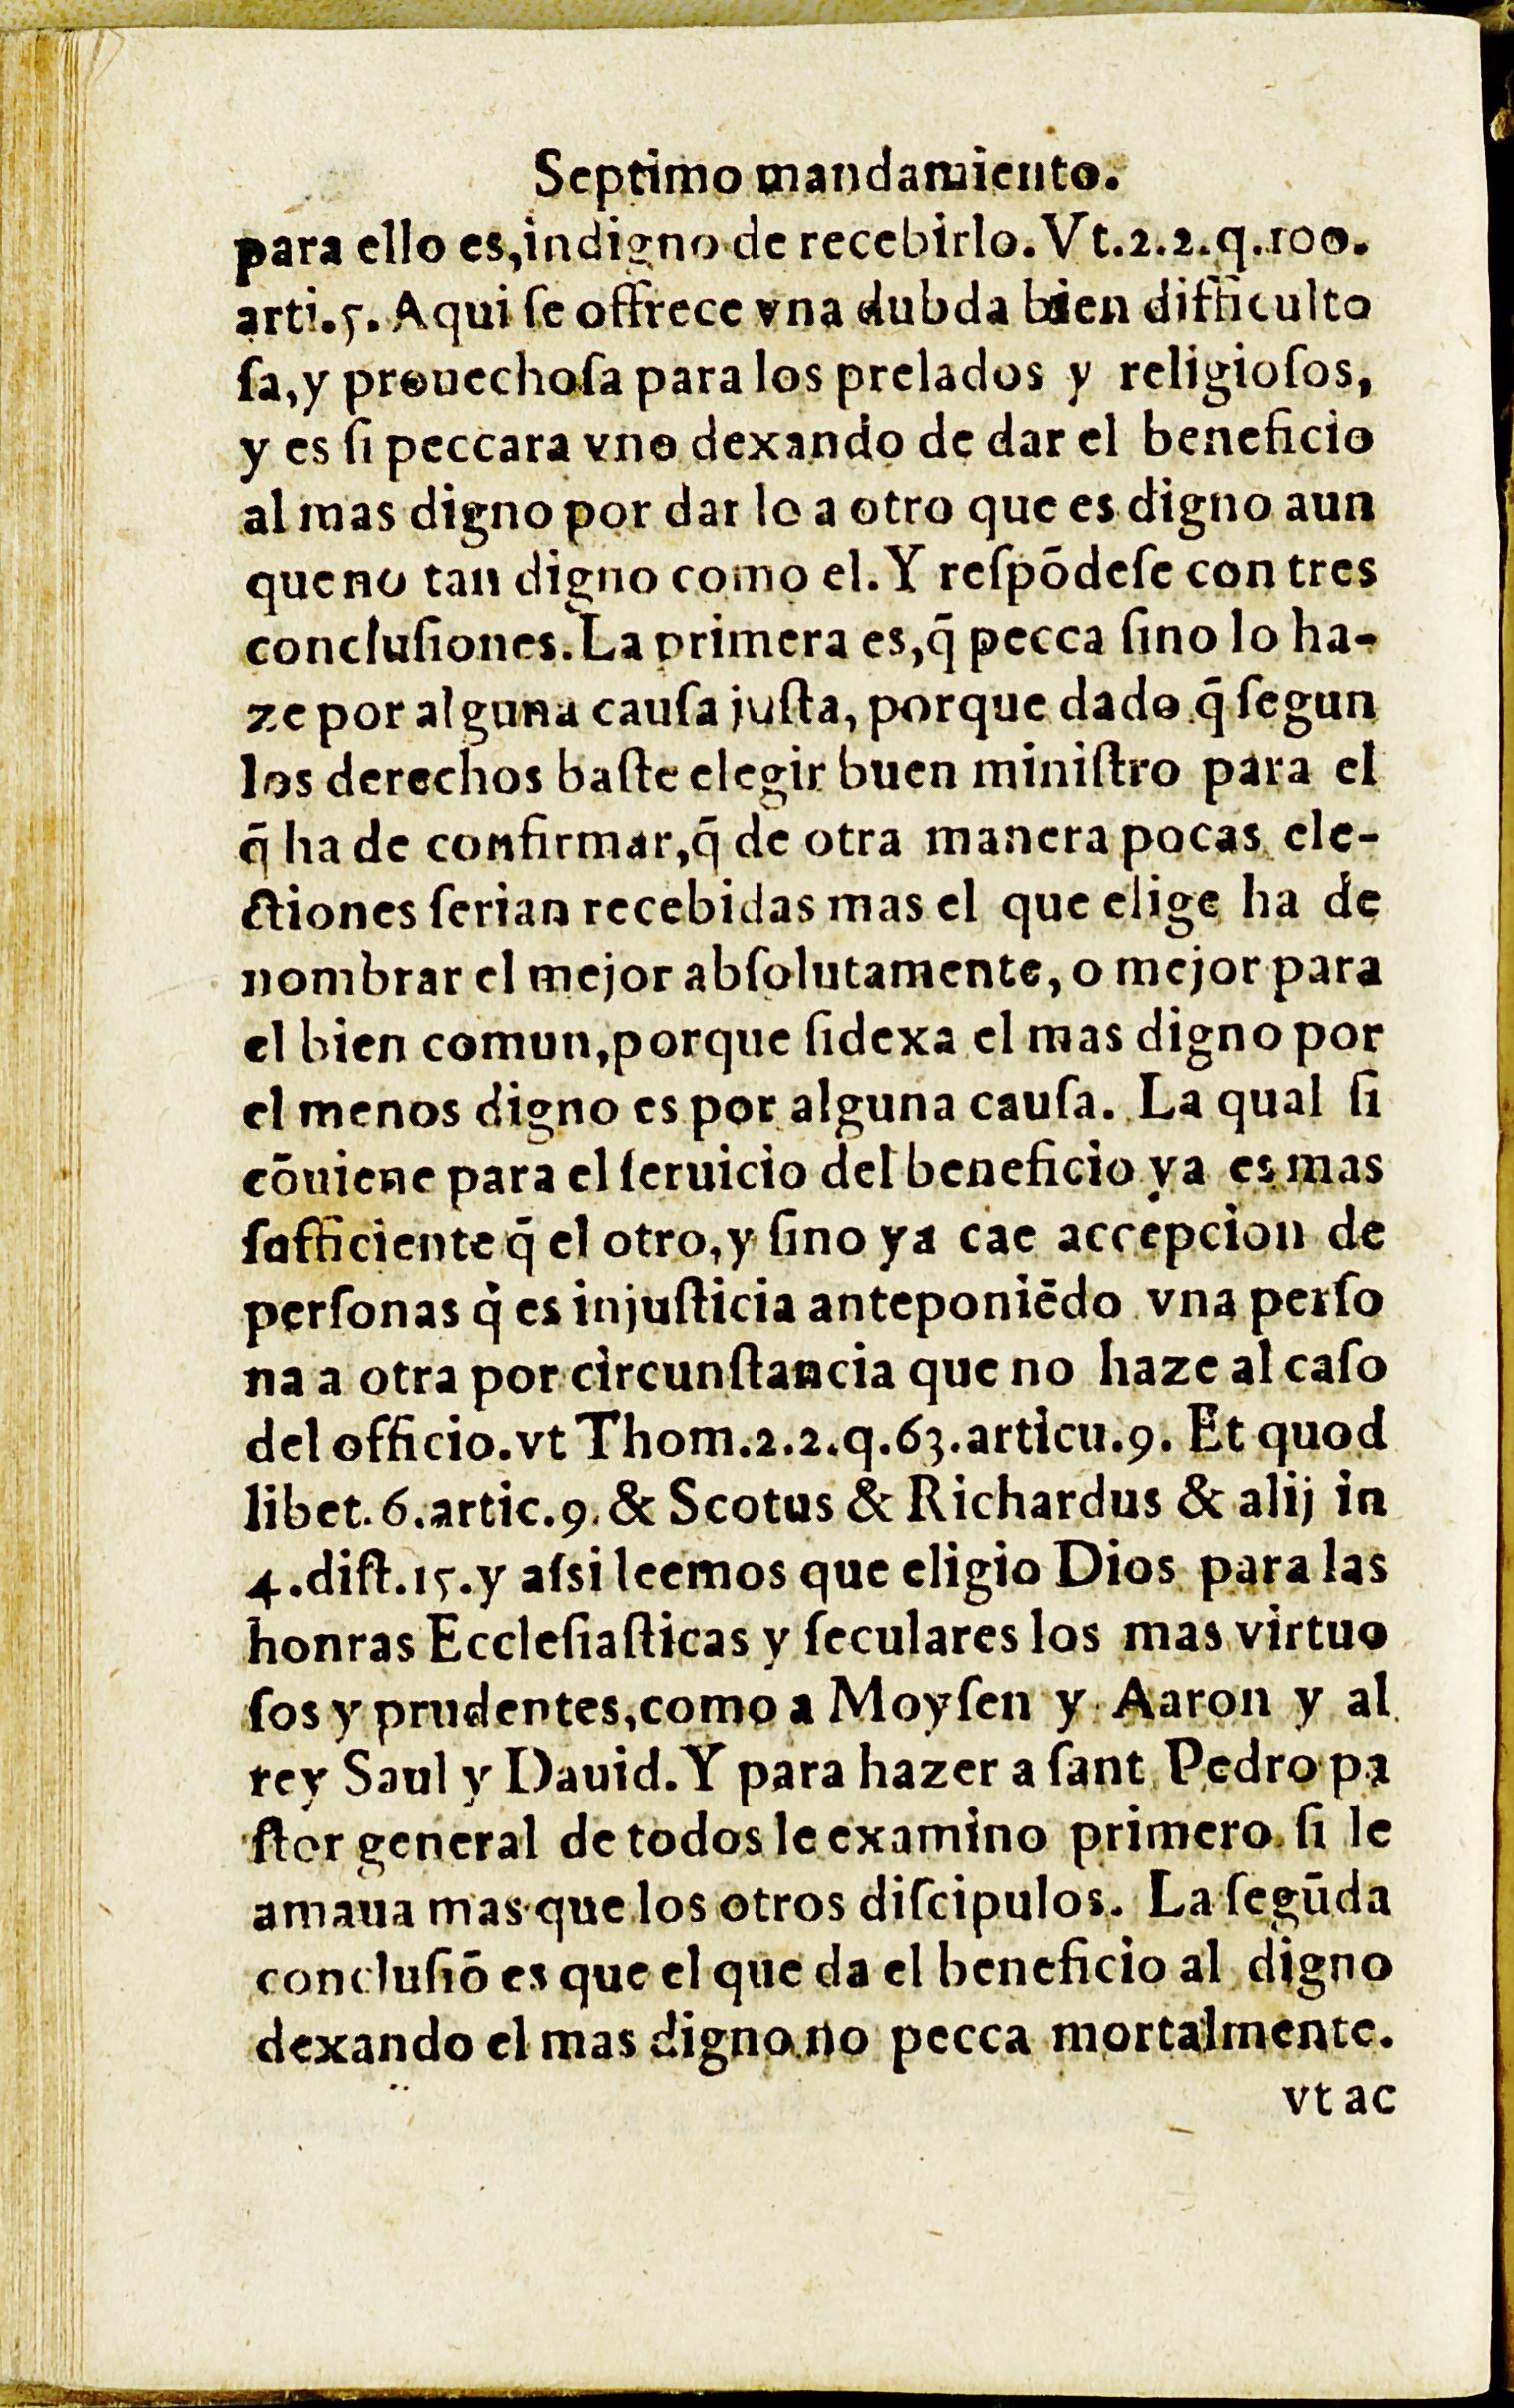 Septimo mandamiento.
para ello es,indigno de recebirlo. Vt.2.2.q.100.
arti.5. Aqui ſe offrece vna dubda bien difficulto
ſa,y prouechoſa para los prelados y religioſos,
y es ſi peccara vno dexando de dar el beneficio
al mas digno por dar lo a otro que es digno aun
que no tan digno como el. Y reſpõdeſe con tres
concluſiones. La primera es,q̃ pecca ſino lo ha-
ze por alguna cauſa juſta, porque dado q̃ ſegun
los derechos baſte elegir buen miniſtro para el
q̃ ha de confirmar,q̃ de otra manera pocas ele-
ctiones ſerian recebidas mas el que elige ha de
nombrar el mejor abſolutamente, o mejor para
el bien comun,porque ſi dexa el mas digno por
el menos digno es por alguna cauſa. La qual ſi
cõuiene para el ſeruicio del beneficio ya es mas
ſufficiente q̃ el otro,y ſino ya cae accepcion de
perſonas q̃ es injuſticia anteponiẽdo vna perſo
na a otra por circunſtancia que no haze al caſo
del officio.vt Thom.2.2.q.63.articu.9. Et quod
libet.6.artic.9.& Scotus & Richardus & alij in
4.diſt.15.y aſsi leemos que eligio Dios para las
honras Eccleſiaſticas y ſeculares los mas virtuo
ſos y prudentes,como a Moyſen y Aaron y al
rey Saul y Dauid. Y para hazer a ſant Pedro pa
ſtor general de todos le examino primero ſi le
amaua mas que los otros diſcipulos. La ſegũda
concluſiõ es que el que da el beneficio al digno
dexando el mas digno no pecca mortalmente.
vt ac